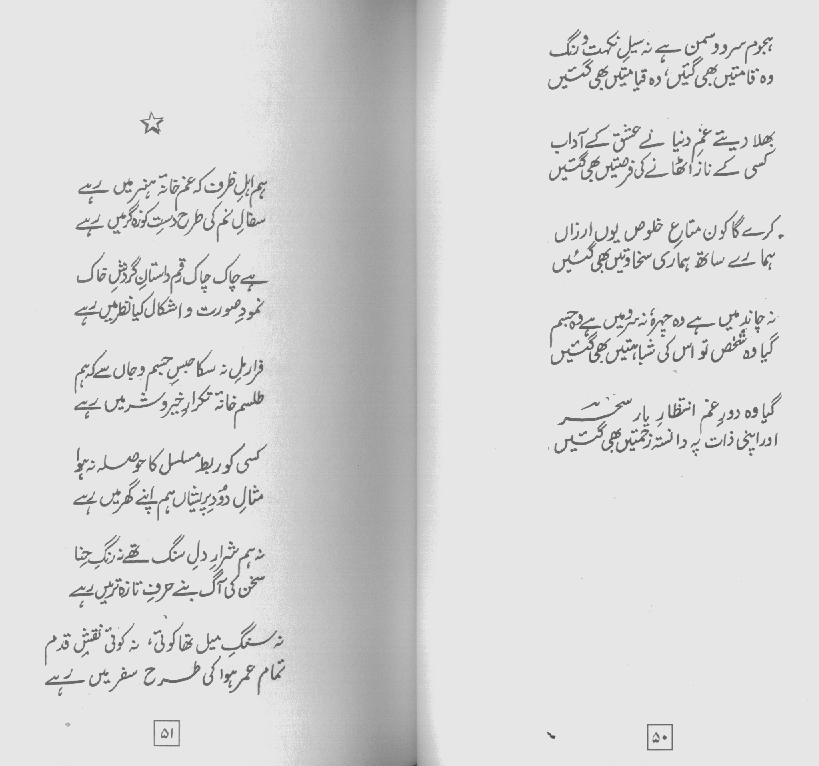 ہجوم سرو و سمن ہے نہ سیلِ نکہت و رنگ
وہ قامتیں بھی گئیں، وہ قیامتیں بھی گئیں
بھلا دیئے غمِ دنیا نے عشق کے آداب
کسی کے ناز اٹھانے کی فرصتیں بھی گئیں
کرے گا کون متاعِ خلوص یوں ارزاں
ہمارے ساتھ ہماری سخاوتیں بھی گئیں
نہ چاند میں ہے وہ چہرہ نہ سرو میں ہے وہ جسم
گیا وہ شخص تو اس کی شباہتیں بھی گئیں
گیا وہ دورِ غمِ انتظارِ یار سحر
اور اپنی ذات پہ دانستہ زحمتیں بھی گئیں
۵۰
ہم اہلِ ظرف کہ غم خانۂ ہنر میں رہے
سفالِ نم کی طرح دستِ کوزہ گر میں رہے
ہے چاک چاک رقم داستانِ گردشِ خاک
نمودِ صورت و اشکال کیا نظر میں رہے
فرار مل نہ سکا حبسِ جسم و جاں سے کہ ہم
طلسم خانۂ تکرارِ خیر و شر میں رہے
کسی کو ربطِ مسلسل کا حوصلہ نہ ہوا
مثالِ دُودِ پریشاں ہم اپنے گھر میں رہے
نہ ہم شرارِ دلِ سنگ تھے نہ رنگِ حنا
سخن کی آگ بنے حرفِ تازہ تر میں رہے
نہ سنگِ میل تھا کوئی، نہ کوئی نقشِ قدم
تمام عمر ہوا کی طرح سفر میں رہے
۵۱